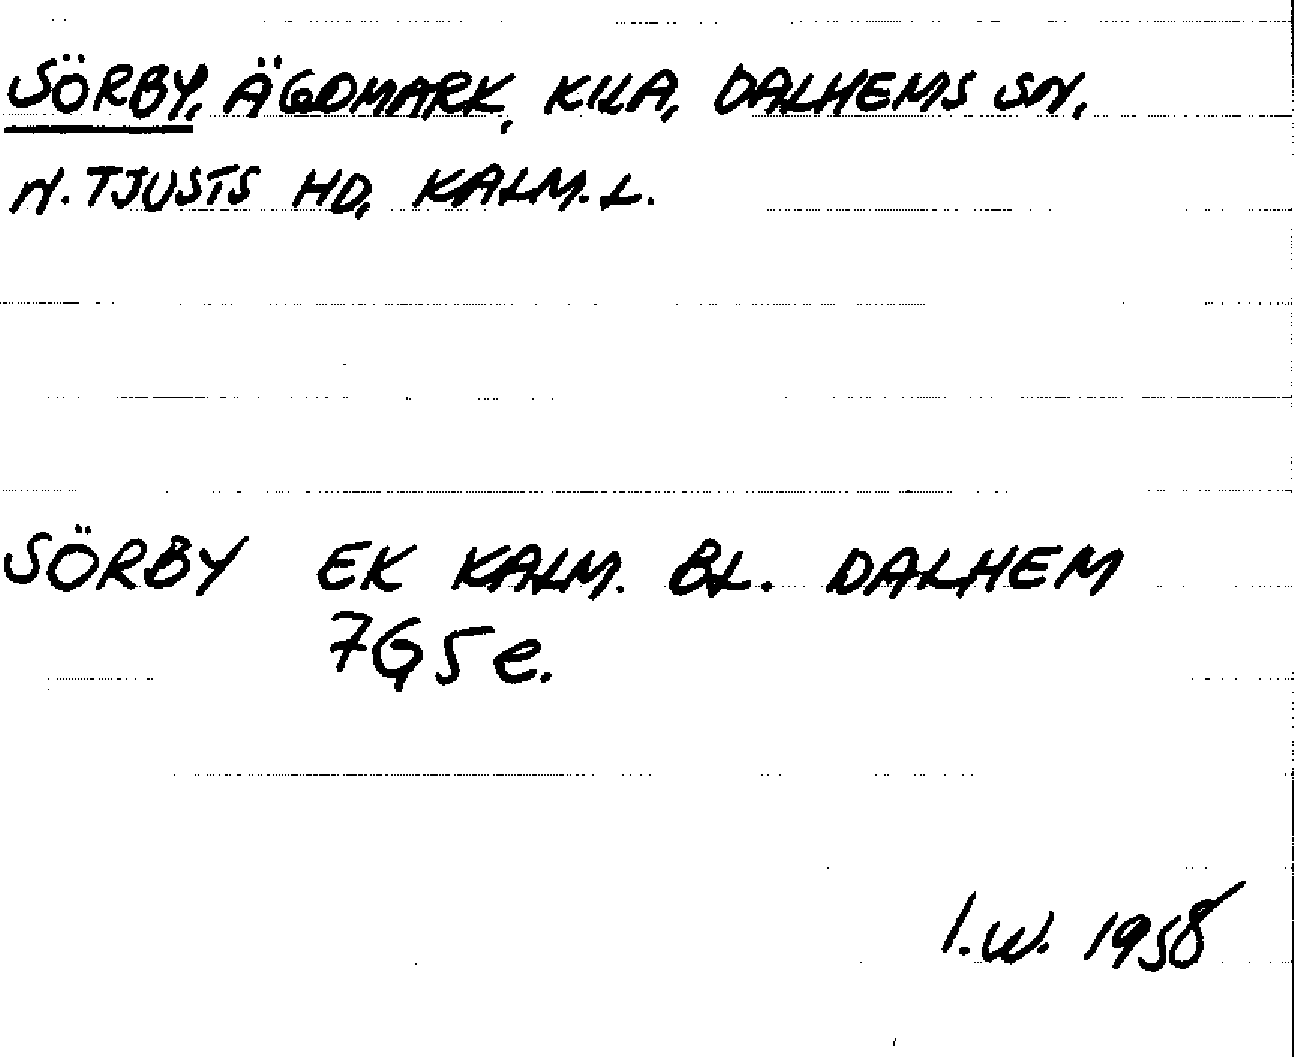 SÖRBY, ÄGOMARK, KILA, DALHEMS SN,
N. TJUSTS HD, KALM. L.
SÖRBY EK KALM. BL. DALHEM
7G5e.
I.W. 1958